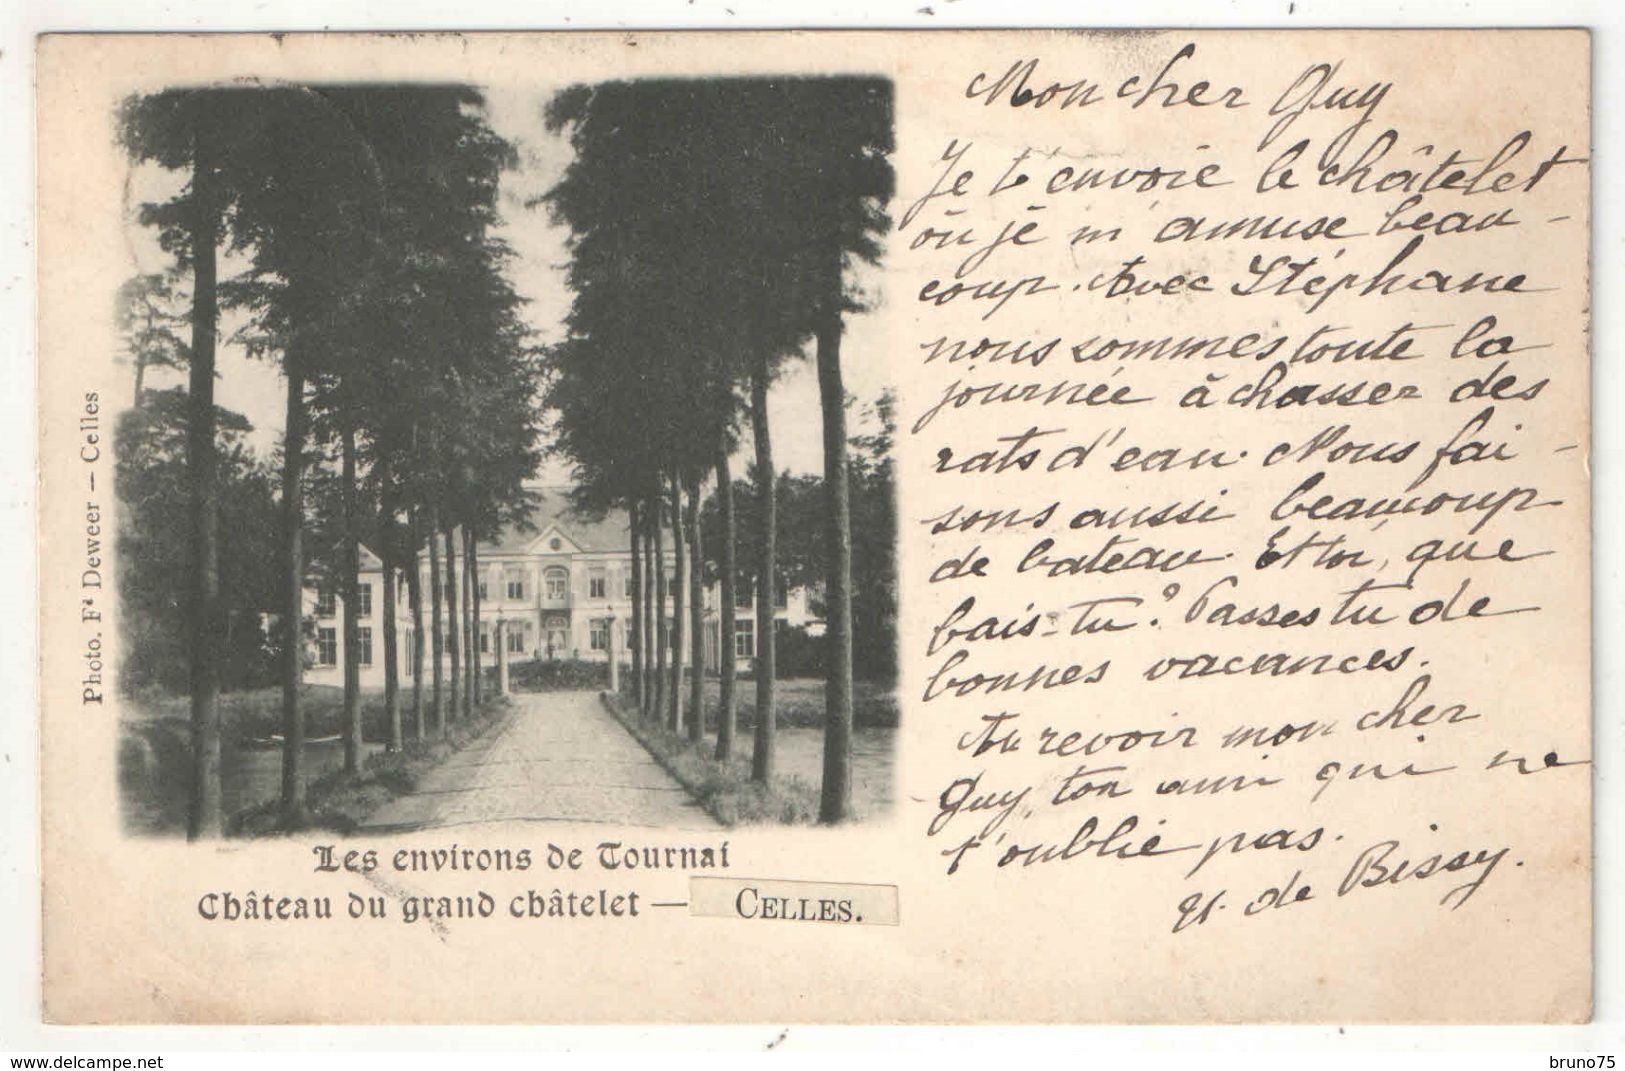 Mon cher Guy
Je t'envoie le châtelet
où je m'amuse beau-
coup. Avec Stéphane
nous sommes toute la
journée à chasser des
rats d'eau. Nous fai-
sons aussi beaucoup
de bateau. Et toi, que
fais-tu? Passes tu de
bonnes vacances.
Au revoir mon cher
Guy, ton ami qui ne
t'oublie pas.
de Bissy.
Photo. Fd Deweer — Celles
Les environs de Tournai
Château du grand châtelet — CELLES.
www.delcampe.net
bruno75